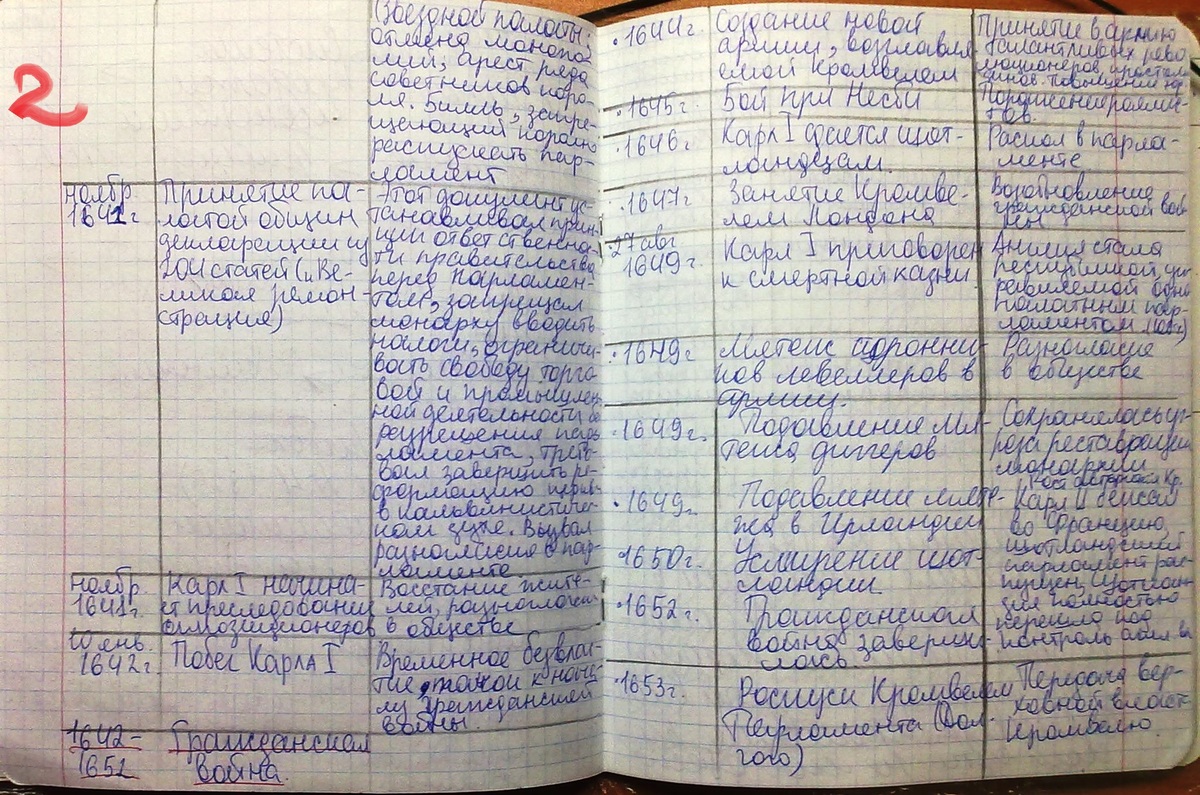 2
(Звездной палаты,
отмена монопо-
лий, арест ряда
советников коро-
ля. Билль, запре-
щающий королю
распускать пар-
ламент
ноябр.
1641г
Принятие па-
латой общин
декларации из
204 статей („Ве-
ликая ремон-
страция)
Этот документ ус-
танавливал прин-
цип ответственнос-
ти правительства
перед парламен-
том, запрещал
монарху вводить
налоги, ограничи-
вать свободу торго
вой и промышлен
ной деятельности без
разрешения пар-
ламента, требо-
вал завершить ре-
формацию церкви
в кальвинистичес-
ком духе. Вызвал
разногласие в пар-
ламенте
ноябр.
1641г.
Карл I начина-
ет преследования
оппозиционеров
Восстание жите-
лей, разногласия
в обществе
10 янв.
1642г.
Побег Карла I
Временное безвлас-
тие, толчок к нача-
лу гражданской
войны.
1642-
1652
Гражданская
война.
1644г.
Создание новой
армии, возглавля
емой Кромвелем
Принятие в армию
талантливых рево
люционеров
1645г.
Бой при Несби
Поражение роялис-
тов.
1646г.
Карл I сдается шот-
ландцам.
Раскол в парла-
менте
1647г
Занятие Кромве-
лем Лондона
Возобновление
гражданской вой
ны
27 янв
1649г.
Карл I приговорен
к смертной казни
Англия стала
республикой, уп-
равляемой одно
палатным пар-
ламентом
1649г
Мятеж сторонни-
ков левеллеров в
армии.
Разногласие
в обществе
1649г.
Подавление мя-
тежа диггеров
Сохранялась уг-
роза реставрации
монархии
1649г.
Подавление мяте-
жа в Ирландии
Рост авторитета Кр.
1650г.
Усмирение шот-
ландии
Карл II бежал
во Францию,
шотландский
парламент рас-
пущен, Шотлан-
дия полностью
перешла под
контроль
1652г.
Гражданская
война заверши-
лась.
1653г.
Роспуск Кромвелем
Парламента (Дол-
гого)
Передача вер-
ховной власти
Кромвелю.